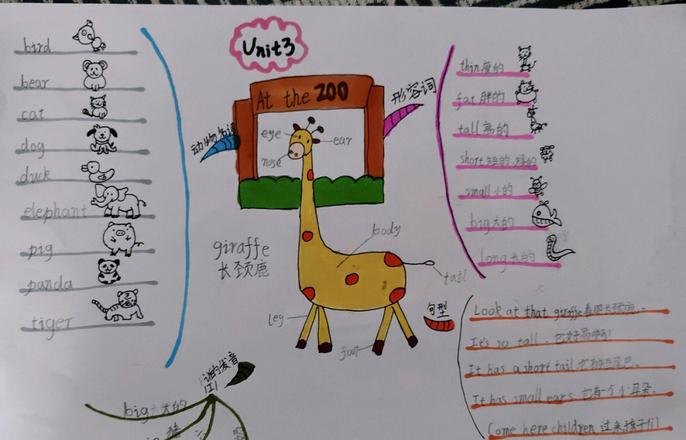 Unit3
At the ZOO
eye
ear
nose
body
tail
leg
foot
giraffe
长颈鹿
动物名词
bird
bear
cat
dog
duck
elephant
pig
panda
tiger
形容词
thin 瘦的
fat 胖的
tall 高的
short 短的 矮的
small 小的
big 大的
long 长的
句型
Look at that giraffe 看那长颈鹿.
It's so tall. 它好高啊!
It has a short tail
It has small ears 它有个小耳朵.
Come here children 过来孩子们!
big 大的
猪